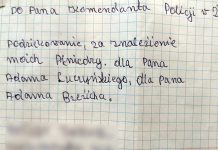 DO PANA Komendanta Policji v
Podziękowanie, za znalezienie
moich Pieniędzy. dla Pana
Adama Łuczyńskiego, dla Pana
Adama